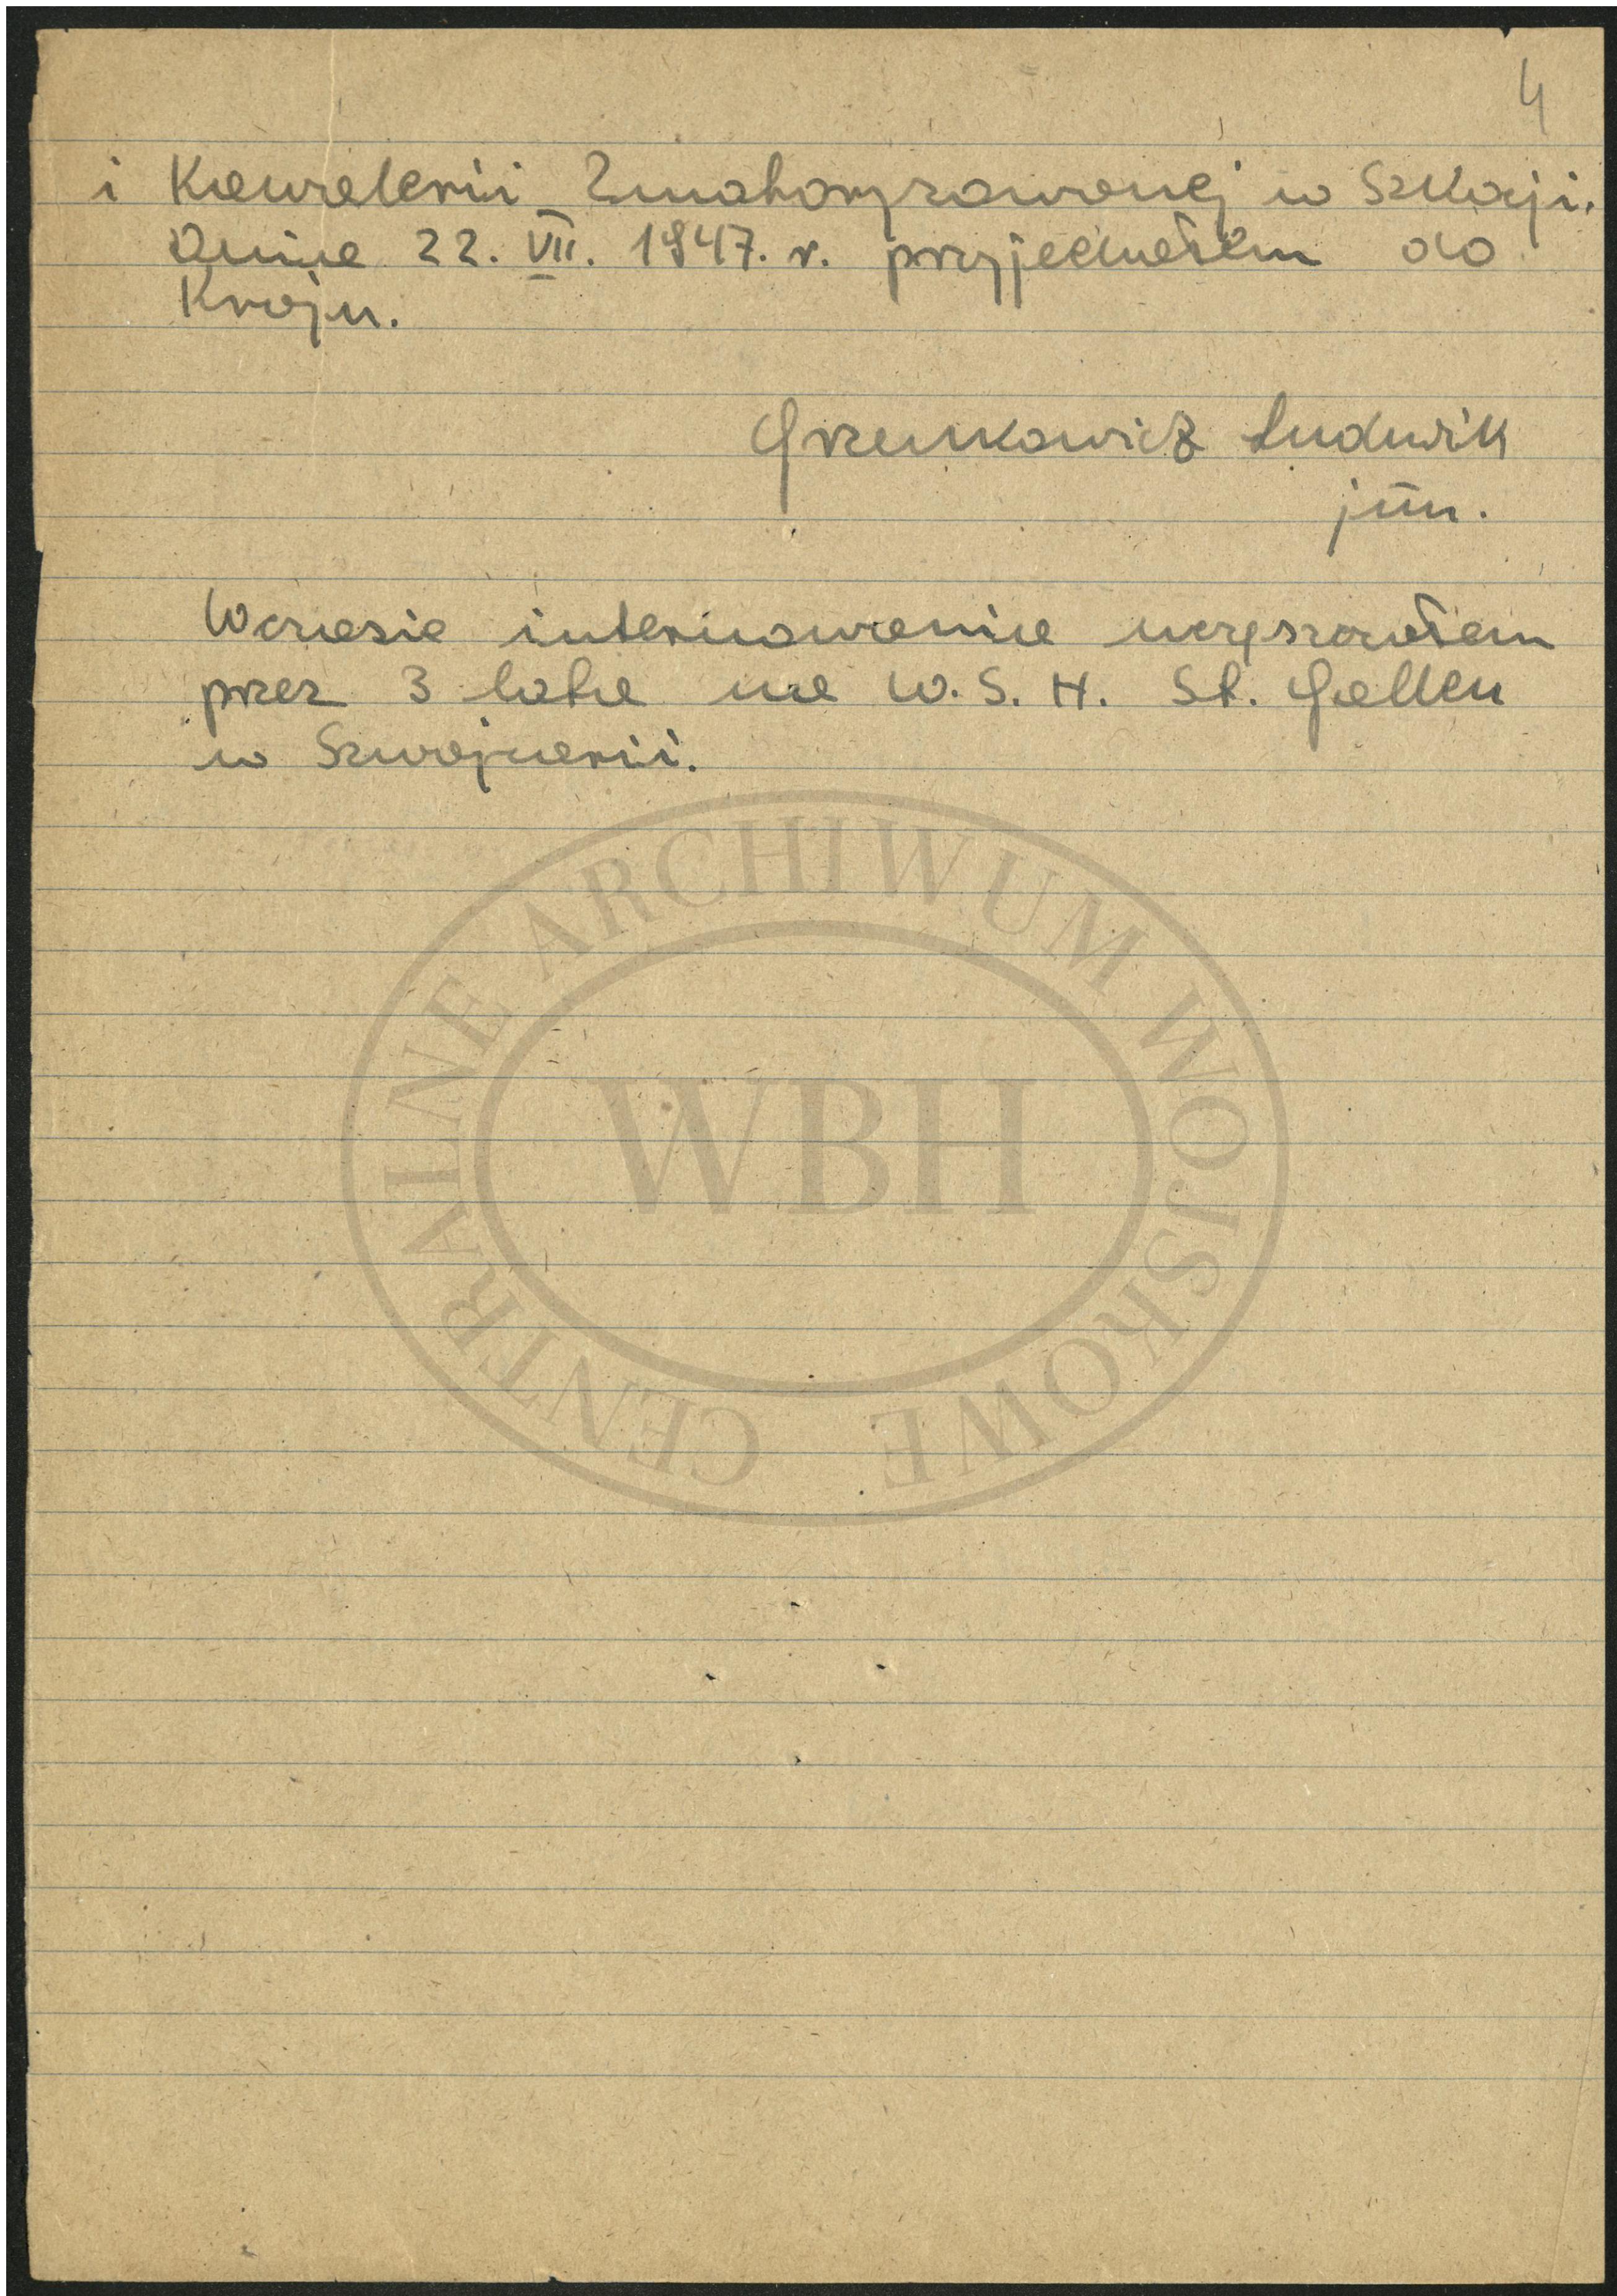 4
i Kawalerii Zmotoryzowanej w Szkocji.
Dnia 22. VII. 1947. r. przyjechałem do
Kraju.
Grenkowicz Ludwik
jun.
W czasie internowania uczęszczałem
przez 3 lata na W. S. H. St. Gallen
w Szwajcarii.
CENTRALNE ARCHIWUM WOJSKOWE
WBH